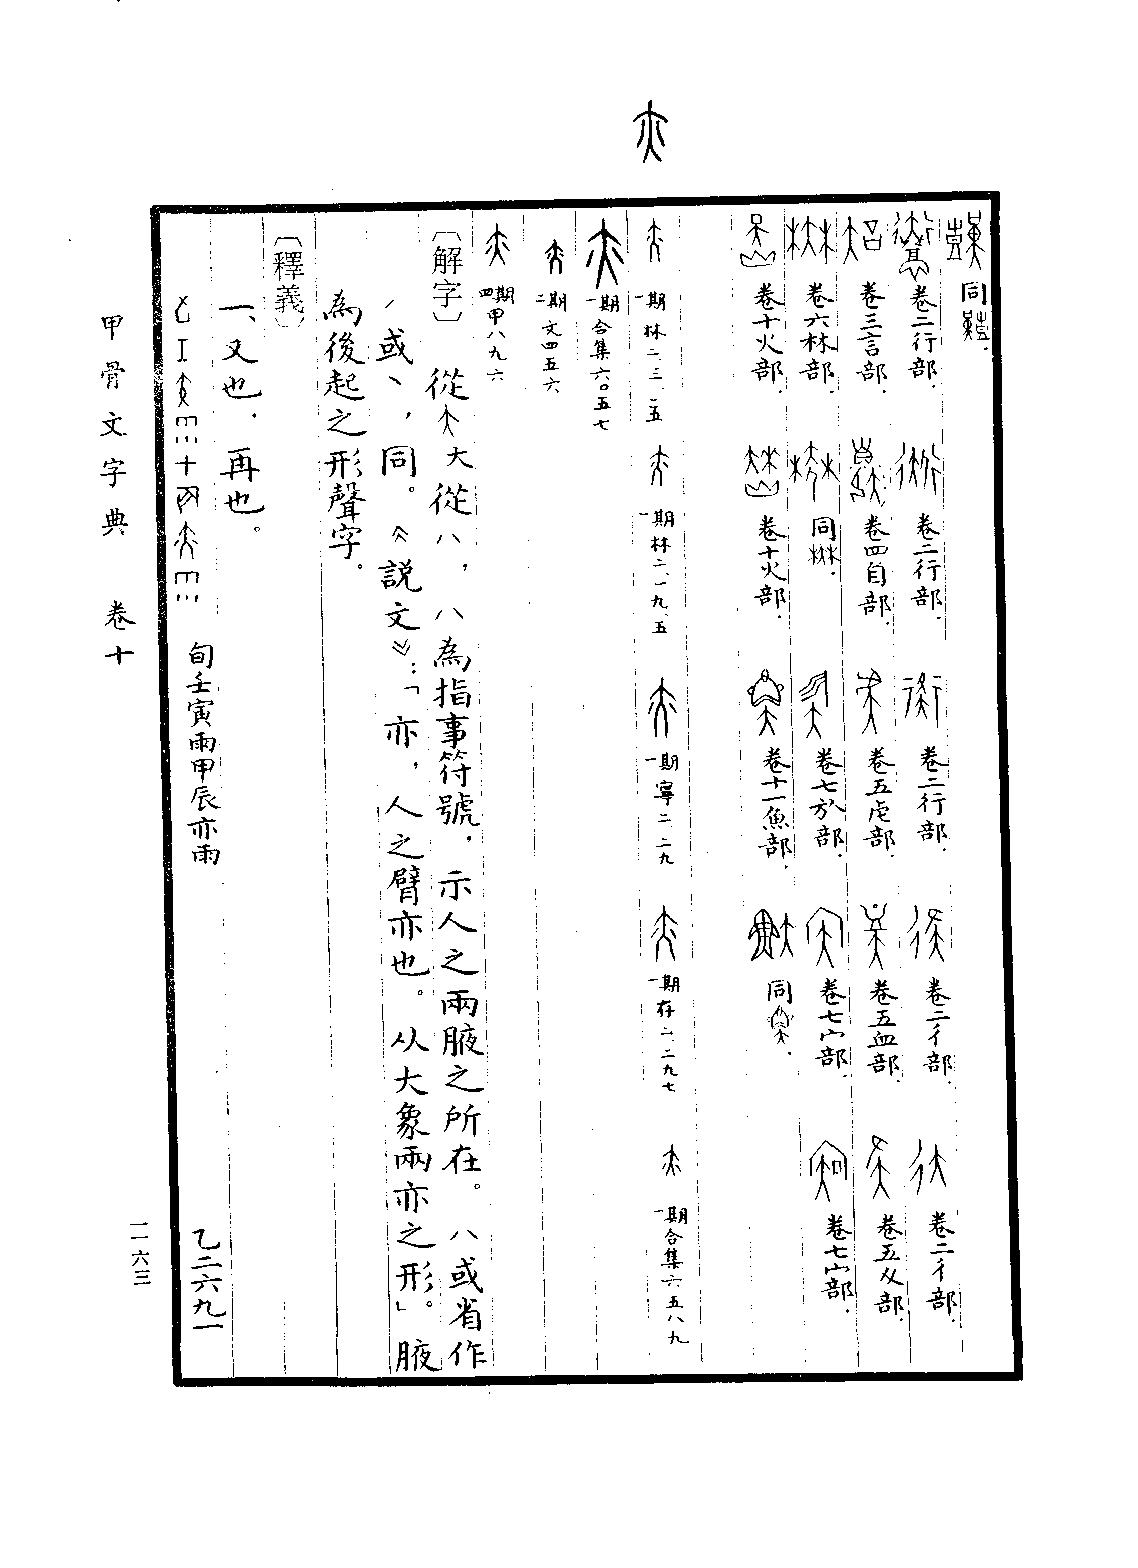 同
卷二行部． 卷二行部． 卷二行部． 卷二彳部． 卷二彳部．
卷三言部． 卷四自部． 卷五虍部． 卷五血部． 卷五夊部．
卷六林部． 同 卷七㫃部． 卷七宀部． 卷七宀部．
卷十火部． 卷十火部． 卷十一魚部． 同
一期林二．三．一五 一期林二．一九．五 一期寧二．二九 一期存二．二九七 一期合集六五八九
一期合集六〇五七
二期文四五六
四期甲八九六
〔解字〕 從大從八，八為指事符號，示人之兩腋之所在。八或省作
丿或丶，同。《說文》：「亦，人之臂亦也。从大象兩亦之形」。腋
為後起之形聲字．
〔釋義〕
一、又也．再也。
旬壬寅雨甲辰亦雨 乙二六九一
甲骨文字典 卷十 一一六三